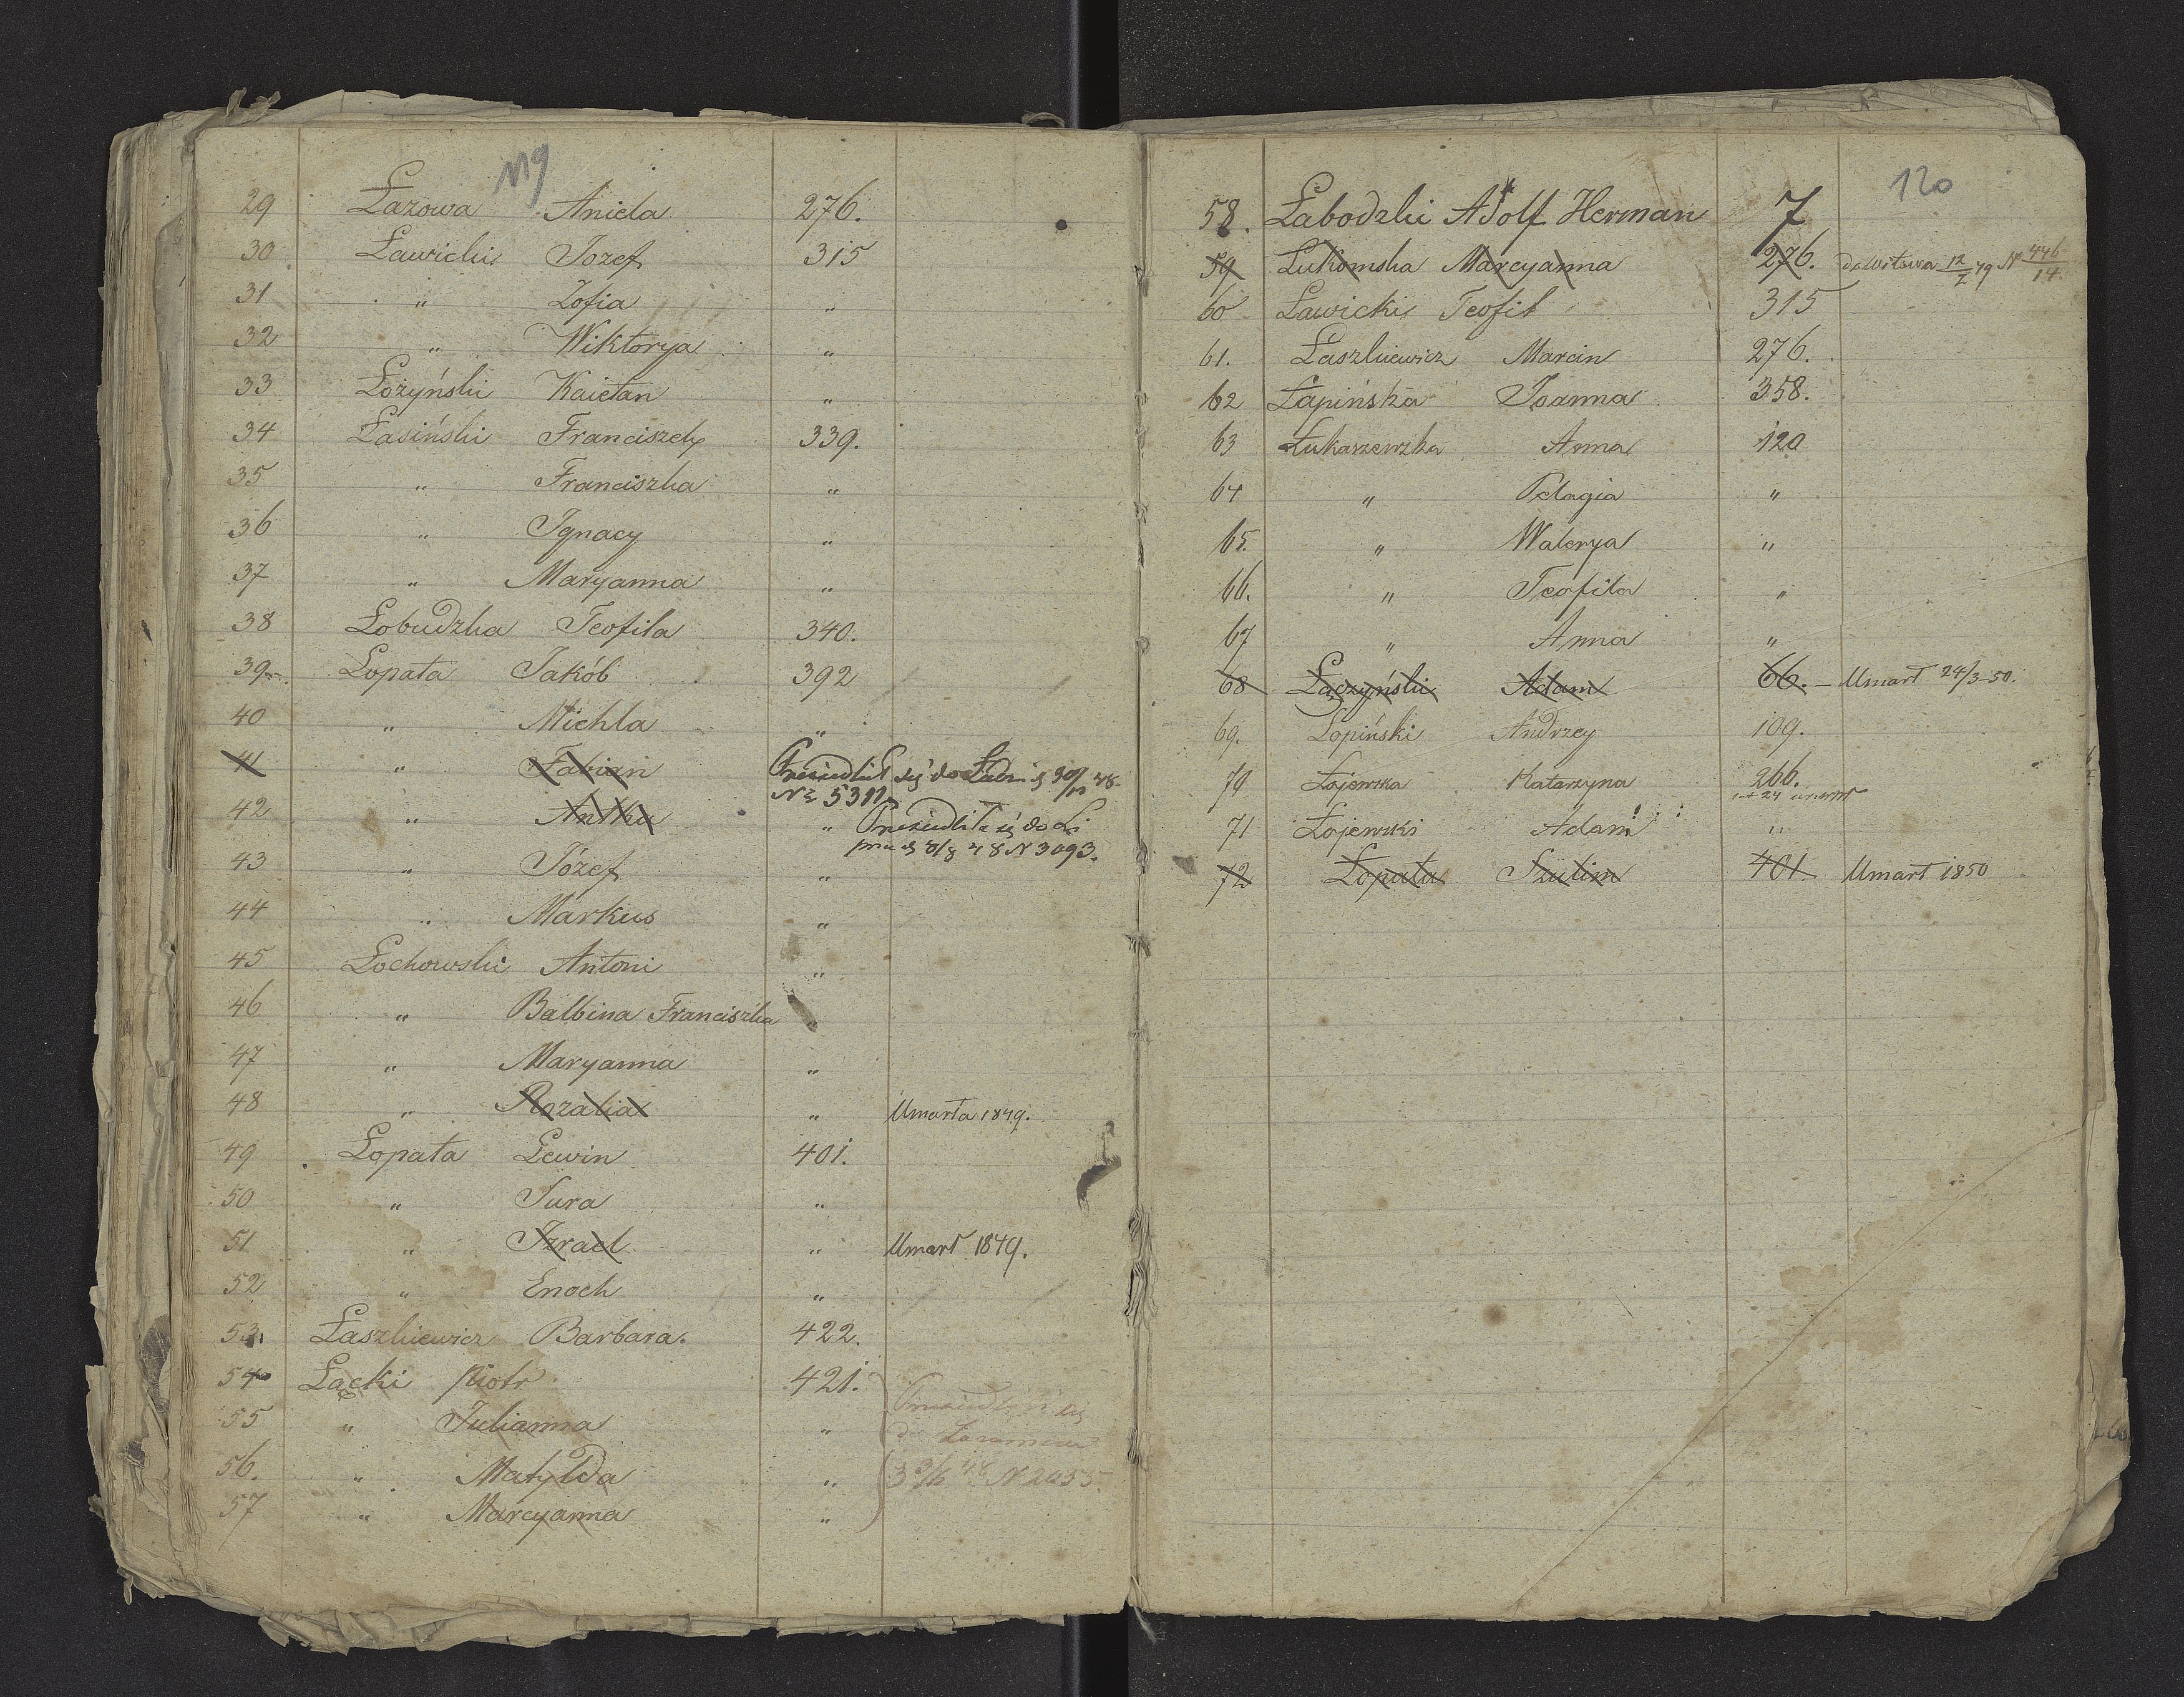 119
29 Łazowa Aniela 276.
30 Ławicki Jozef 315
31 " Zofia "
32 " Wiktorya "
33 Łożyński Kaietan "
34 Łasiński Franciszek 339.
35 " Franciszka "
36 " Ignacy "
37 " Maryanna "
38 Łobudzka Teofila 340.
39 Łopata Jakób 392
40 " Michla "
41 " Fabian Przesiedlił się do
№ 5311
42 " Antka " do
48 N 3093.
43 " Józef "
44 " Markus "
45 Łochowski Antoni "
46 " Balbina Franciszka "
47 " Maryanna "
48 " Rozalia " Umarła 1849.
49 Łopata Lewin 401.
50 " Sura "
51 " Izrael " Umarł 1849.
52 " Enoch "
53. Łaszkiewicz Barbara. 422.
54 Łącki Piotr 421.
55 " Julianna " do
56. " Matylda " 48 N 2035.
57 " Marcyanna "
120
58. Łabodzki Adolf Herman 7
59 Łukomska Marcyanna 276. 12/I 49 N 446/14.
60 Ławicki Teofil 315
61. Łaszkiewicz Marcin 276.
62 Łapińska Joanna 358.
63 Łukaszewska Anna 120
64 " Pelagia "
65. " Walerya "
66. " Teofila "
67 " Anna "
68 Łączyński Adam 66. – Umarł 24/3-50.
69. Łopiński Andrzey 109.
70 Łojewska Katarzyna 266.
71 Łojewski Adam "
72 Łopata Szulim 401 Umarł 1850